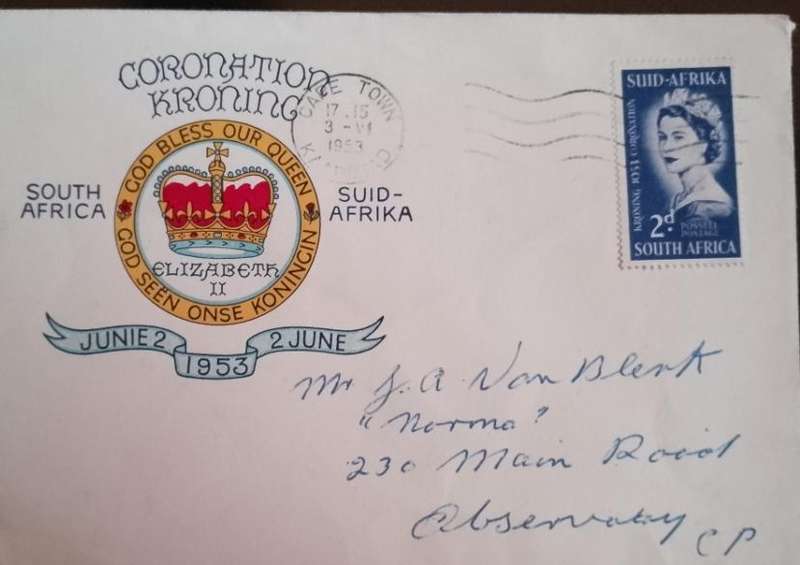 CORONATION
KRONING
GOD BLESS OUR QUEEN
SOUTH AFRICA
SUID-AFRIKA
ELIZABETH
II
GOD SEËN ONSE KONINGIN
JUNIE 2 1953 2 JUNE
CAPE TOWN
17.15
3-VI
1953
SUID-AFRIKA
KRONING 1953 CORONATION
2d.
POSSEËL
POSTAGE
SOUTH AFRICA
Mr J. A Van Blerk
"Norma"
230 Main Road
Observatory CP